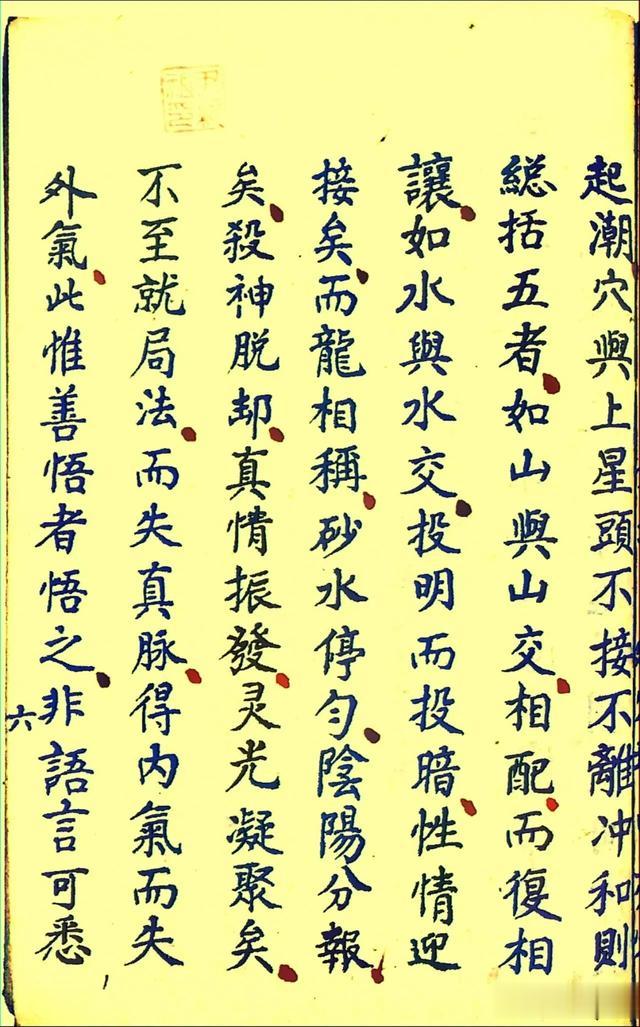 起潮穴與上星頭不接不離冲和則
総括五者如山與山交相配而復相
讓如水與水交投明而投暗性情迎
接矣而龍相稱砂水停勻陰陽分報
矣殺神脱却真情振發灵光凝聚矣
不至就局法而失真脉得内氣而失
外氣此惟善悟者悟之非語言可悉
六